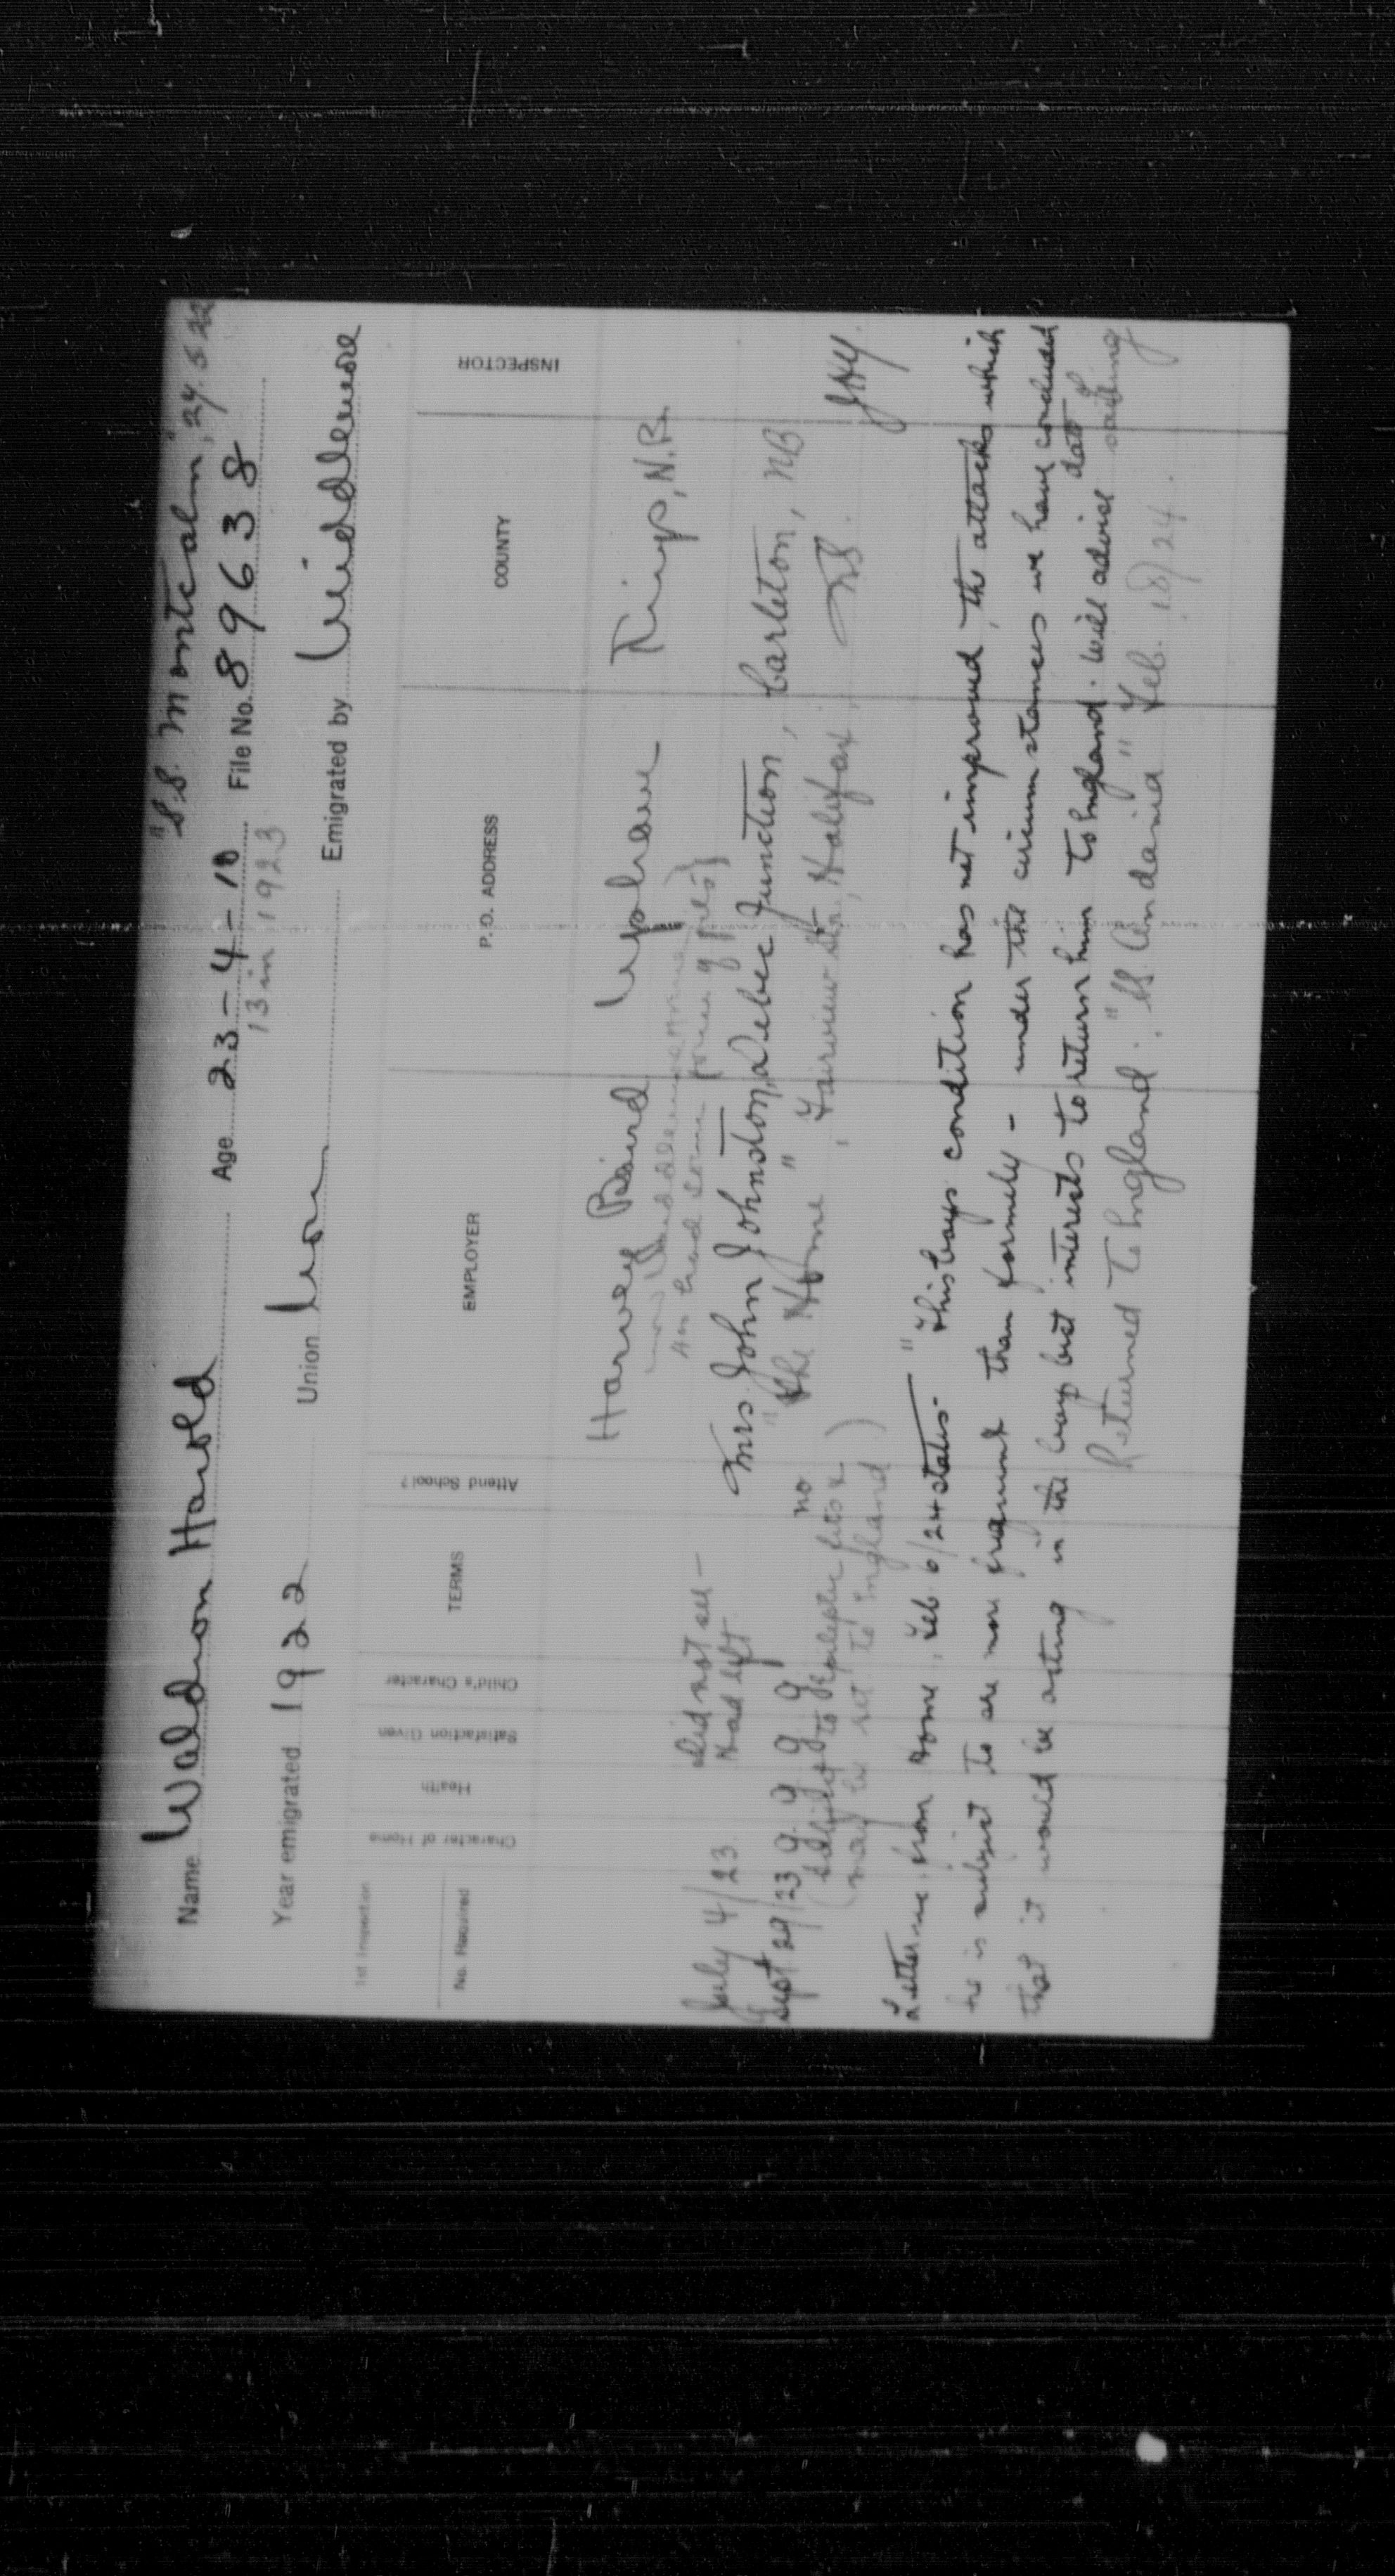 "S.S. Montcalm", 27.5.22
Name Waldron Harold Age 23-4-10 File No. 89638
13 in 1923
Year emigrated 1922 Union Emigrated by Middlemore
1st Inspection
No. Required Character of Home Health Satisfaction Given Child's Character TERMS Attend School? EMPLOYER P. O. ADDRESS COUNTY INSPECTOR
Harvey Baird Upham Kings, N.B.
now Middlemore Home
had some form of fits)
July 4/23. Did not see—
Had left.
Mrs. John Johnston, Debec Junction, Carleton, NB
Sept 29/23 g. g g g no "The Home", Fairview Stn, Halifax, NS.
(subject to epileptic fits &
may be ret to England)
Letter from Home, Feb. 6/24 states- "This boys condition has not improved, the attacks which
he is subject to are more frequent than formerly - under the circumstances we have concluded
that it would be acting in the boys best interests to return him to England. Will advise date sailing"
Returned to England. "SS Andania" Feb. 18/24.